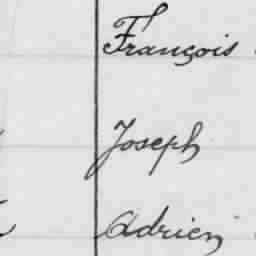 François
Joseph
Adrien